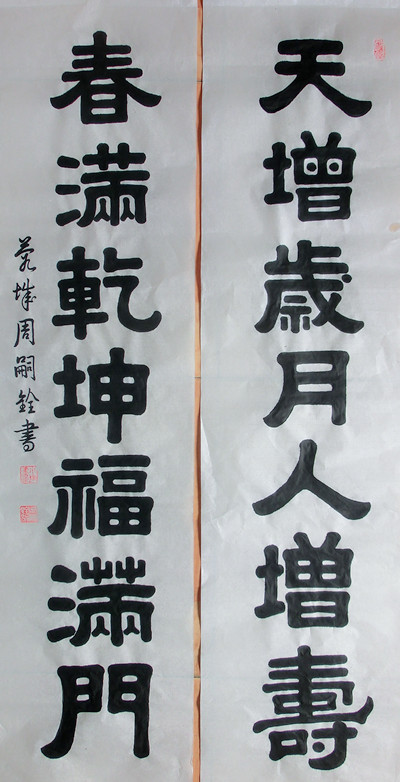 天增歲月人增壽
春滿乾坤福滿門
周嗣銓書